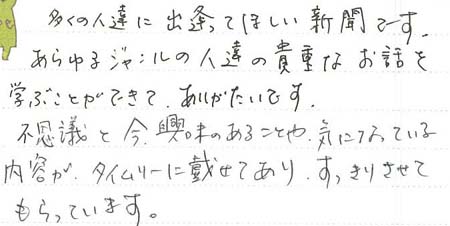 多くの人達に出逢ってほしい新聞です。
あらゆるジャンルの人達の貴重なお話を
学ぶことができて、ありがたいです。
不思議と今、興味のあることや、気になっている
内容が、タイムリーに載せてあり、すっきりさせて
もらっています。